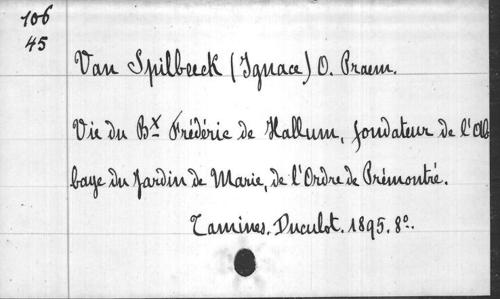 106
45
Van Spilbeeck (Ignace) O. Praem.
Vie du Bx Frédéric de Hallum, fondateur de l'Ab
baye du Jardin de Marie, de l'Ordre de Prémontré.
Tamines. Duculot. 1895. 8o.